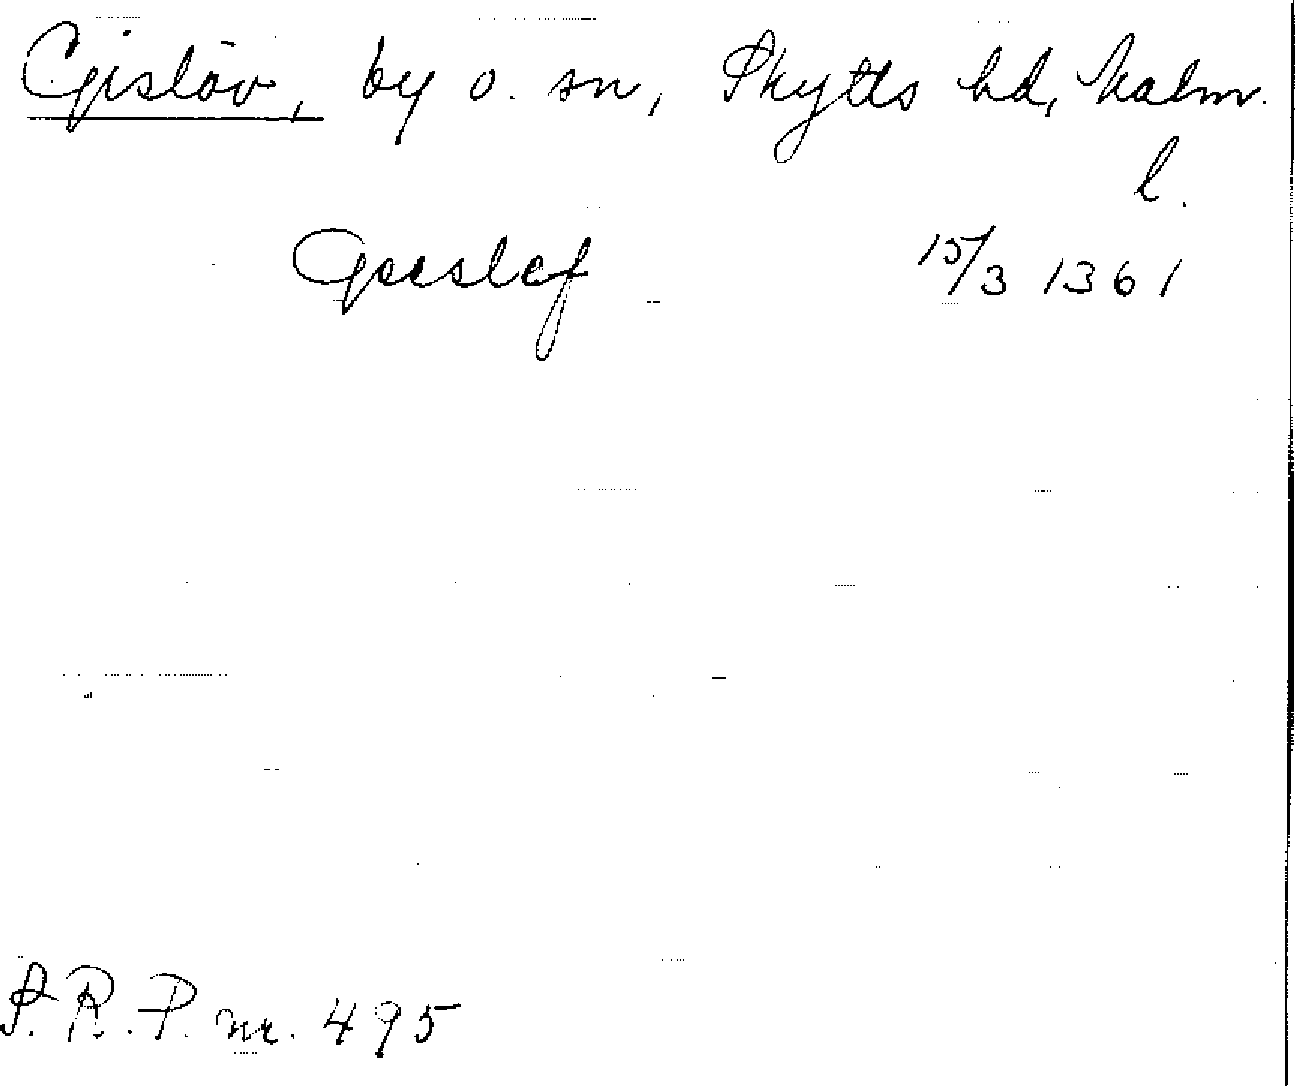 Gislöv, by o. sn, Skytts hd, Malm.
l.
Geeslef 15/3 1361
S.R.P. nr. 495